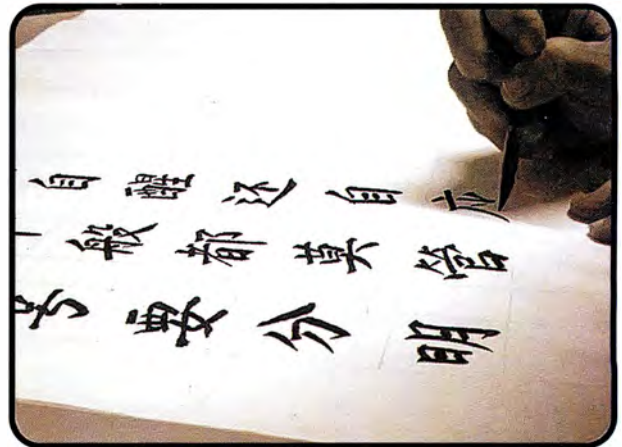 自醒还自应
般都莫管
要分明